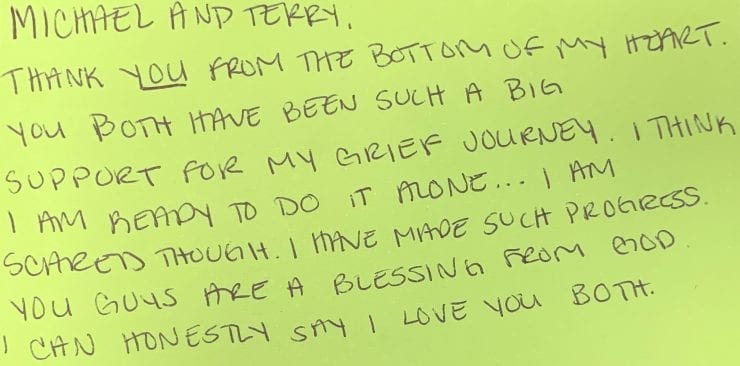 MICHAEL AND TERRY,
THANK YOU FROM THE BOTTOM OF MY HEART.
YOU BOTH HAVE BEEN SUCH A BIG
SUPPORT FOR MY GRIEF JOURNEY. I THINK
I AM READY TO DO IT ALONE... I AM
SCARED THOUGH. I HAVE MADE SUCH PROGRESS.
YOU GUYS ARE A BLESSING FROM GOD.
I CAN HONESTLY SAY I LOVE YOU BOTH.